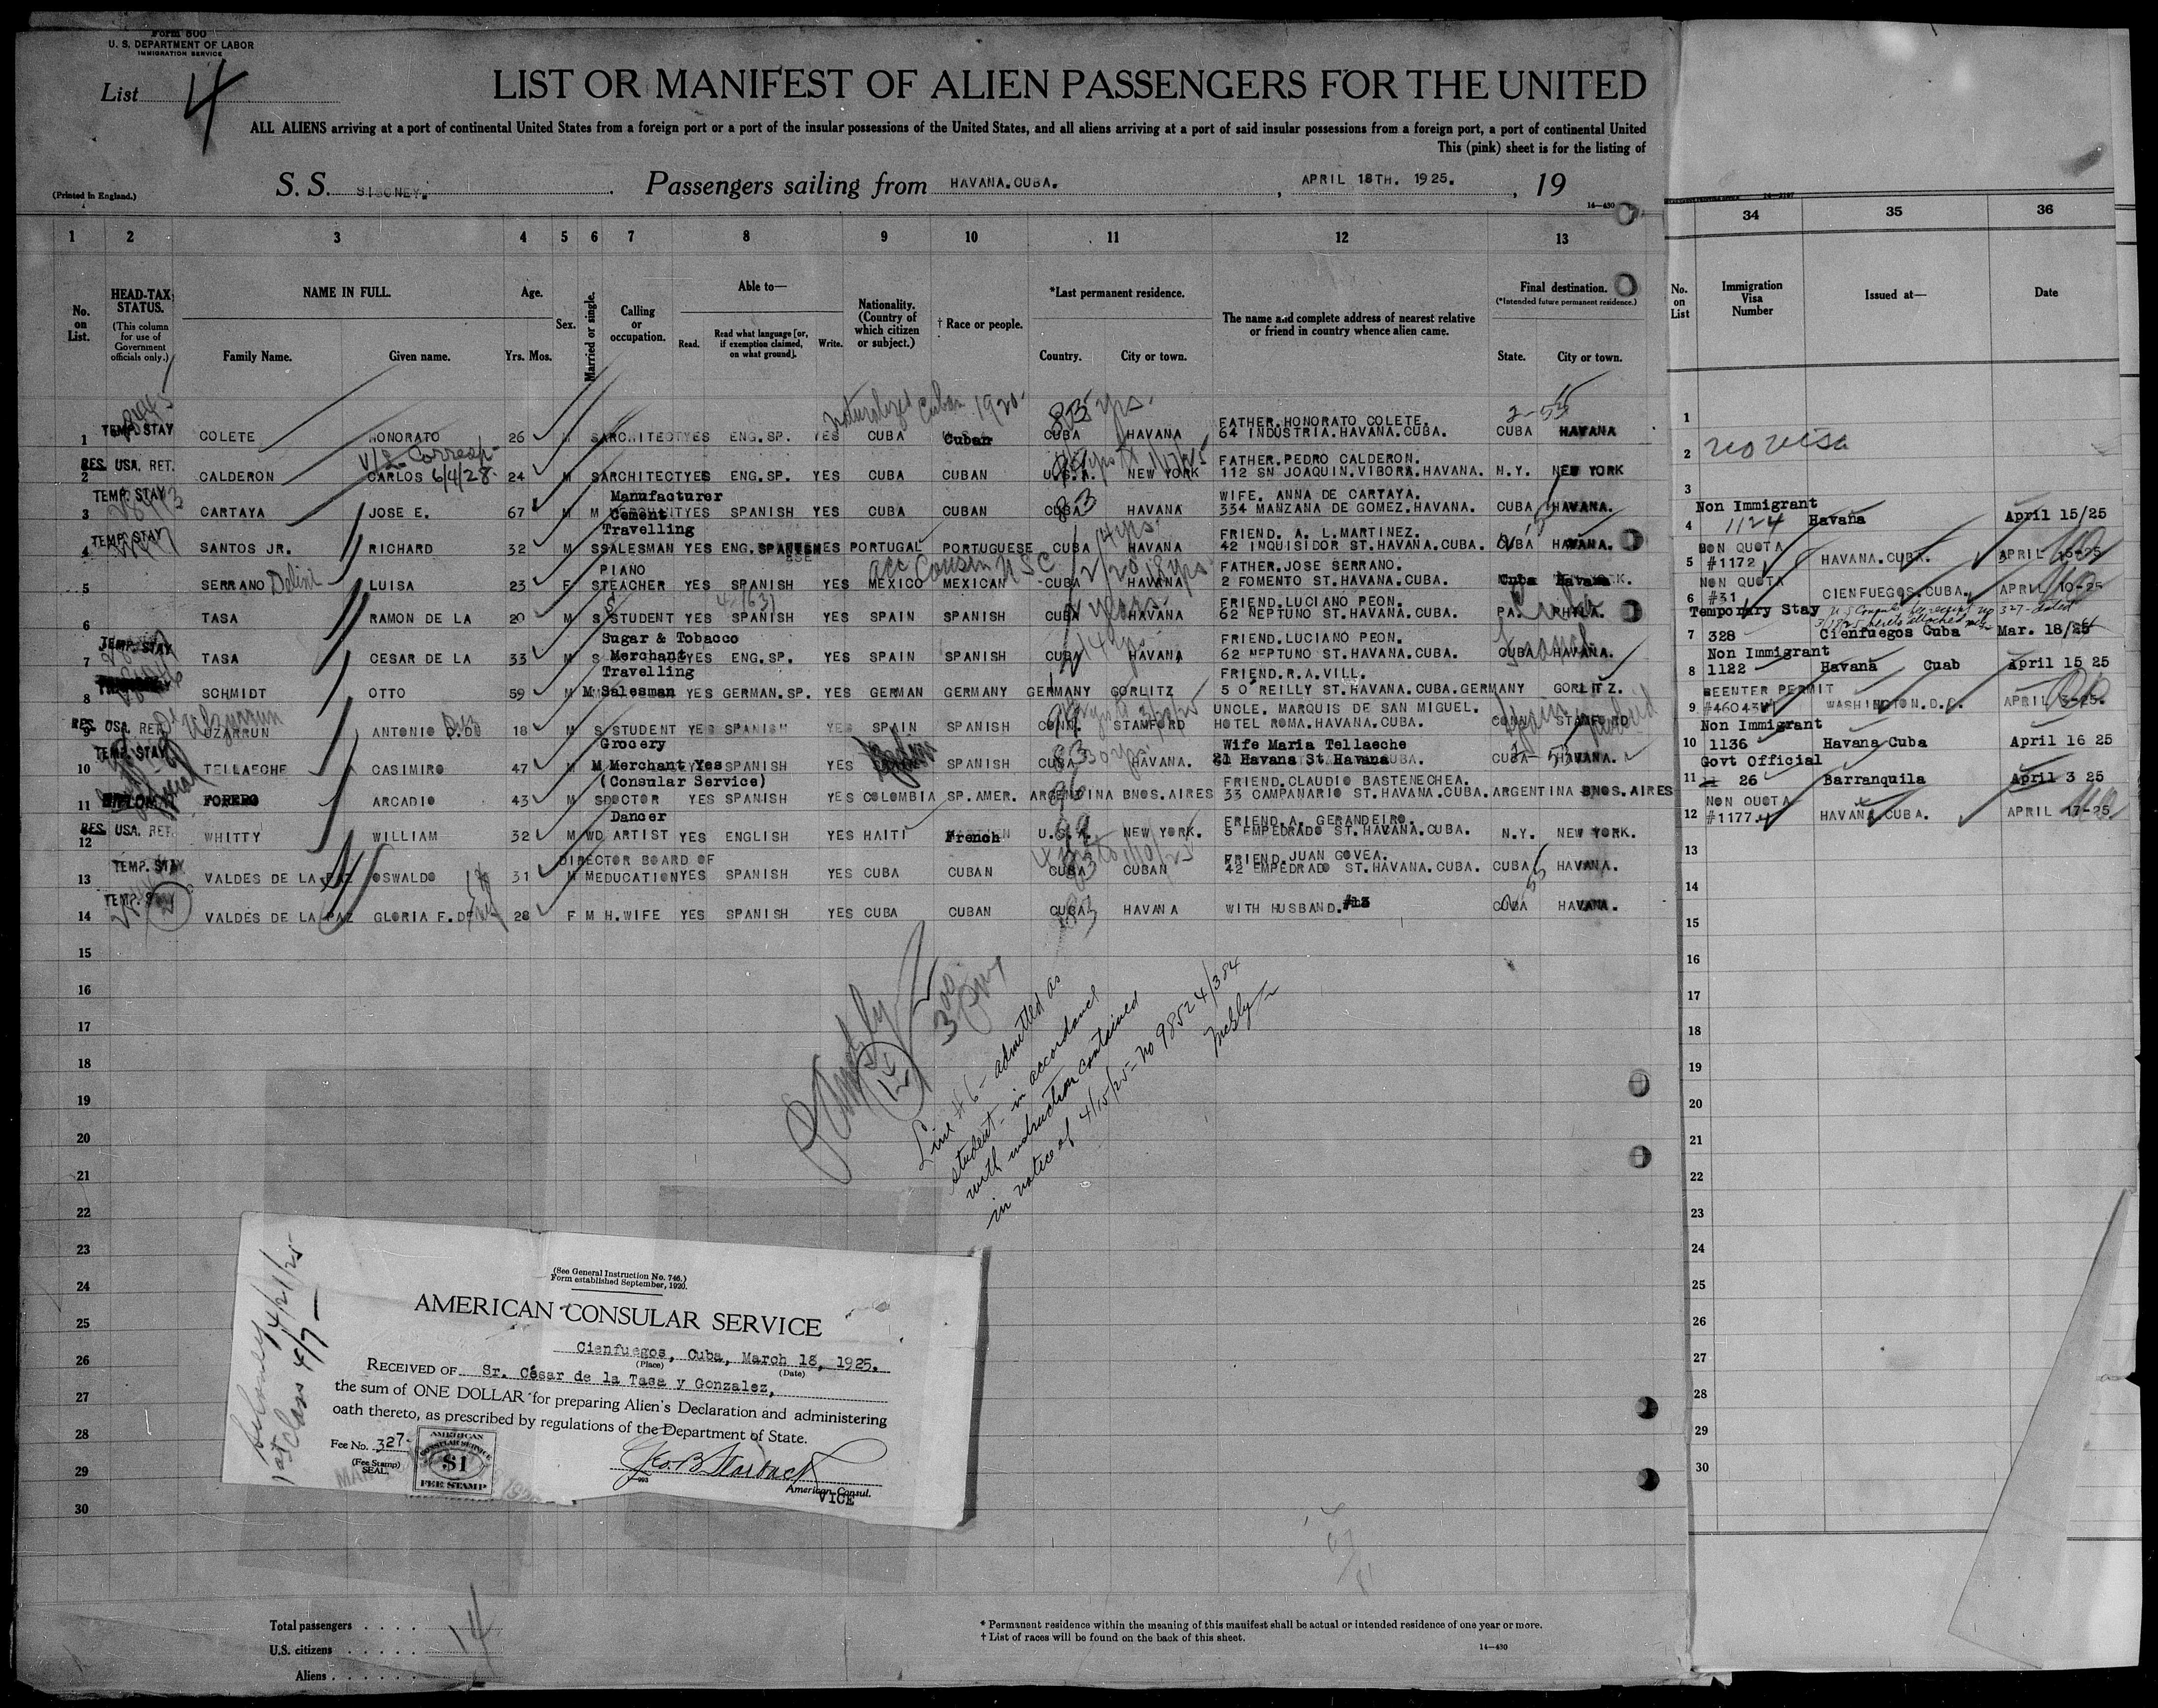 Form 500
U. S. DEPARTMENT OF LABOR
IMMIGRATION SERVICE
List 4
LIST OR MANIFEST OF ALIEN PASSENGERS FOR THE UNITED
ALL ALIENS arriving at a port of continental United States from a foreign port or a port of the insular possessions of the United States, and all aliens arriving at a port of said insular possessions from a foreign port, a port of continental United
This (pink) sheet is for the listing of
(Printed in England.)
S. S. SIBONEY. Passengers sailing from HAVANA.CUBA. , APRIL 18TH. 1925. , 19
14—430
1 2 3 4 5 6 7 8 9 10 11 12 13
34 35 36
No. on List.
HEAD-TAX STATUS.
(This column for use of Government officials only.)
NAME IN FULL.
Family Name. Given name.
Age.
Yrs. Mos.
Sex.
Married or single.
Calling or occupation.
Able to—
Read. Read what language [or, if exemption claimed, on what ground]. Write.
Nationality. (Country of which citizen or subject.)
† Race or people.
*Last permanent residence.
Country. City or town.
The name and complete address of nearest relative or friend in country whence alien came.
Final destination.
(*Intended future permanent residence.)
State. City or town.
No. on List
Immigration Visa Number
Issued at—
Date
naturalized Cuban 1920.
1 TEMP. STAY COLETE HONORATO 26 M S ARCHITECT YES ENG.SP. YES CUBA Cuban CUBA HAVANA FATHER.HONORATO COLETE. 64 INDUSTRIA.HAVANA.CUBA. CUBA HAVANA
V/L Corresp- 6/4/28.
2 RES. USA. RET. CALDERON CARLOS 24 M S ARCHITECT YES ENG.SP. YES CUBA CUBAN U.S.A. NEW YORK FATHER.PEDRO CALDERON. 112 SN JOAQUIN.VIBORA.HAVANA. N.Y. NEW YORK
3 TEMP. STAY CARTAYA JOSE E. 67 M M Manufacturer Cement YES SPANISH YES CUBA CUBAN CUBA HAVANA WIFE. ANNA DE CARTAYA. 334 MANZANA DE GOMEZ.HAVANA. CUBA HAVANA.
4 TEMP. STAY SANTOS JR. RICHARD 32 M S Travelling SALESMAN YES ENG. YES PORTUGAL PORTUGUESE CUBA HAVANA FRIEND. A. L.MARTINEZ. 42 INQUISIDOR ST.HAVANA.CUBA. CUBA HAVANA.
acc Cousin USC
5 SERRANO LUISA 23 F S PIANO TEACHER YES SPANISH YES MEXICO MEXICAN CUBA HAVANA FATHER.JOSE SERRANO. 2 FOMENTO ST.HAVANA.CUBA. Cuba Havana
6 TASA RAMON DE LA 20 M S STUDENT YES SPANISH YES SPAIN SPANISH CUBA HAVANA FRIEND.LUCIANO PEON. 62 NEPTUNO ST.HAVANA.CUBA. PA. PHILA.
7 TEMP. STAY TASA CESAR DE LA 33 M S Sugar & Tobacco Merchant YES ENG.SP. YES SPAIN SPANISH CUBA HAVANA FRIEND.LUCIANO PEON. 62 NEPTUNO ST.HAVANA.CUBA. CUBA HAVANA.
8 SCHMIDT OTTO 59 M M Travelling Salesman YES GERMAN.SP. YES GERMAN GERMANY GERMANY GORLITZ FRIEND.R.A.VILL. 5 O'REILLY ST.HAVANA.CUBA. GERMANY GORLITZ.
9 RES. USA. RET. UZARRUN ANTONIO D.DU 18 M S STUDENT YES SPANISH YES SPAIN SPANISH CONN. STAMFORD UNCLE. MARQUIS DE SAN MIGUEL. HOTEL ROMA.HAVANA.CUBA. CONN. STAMFORD
10 TEMP. STAY TELLAECHE CASIMIRO 47 M M Grocery Merchant Yes SPANISH YES SPANISH CUBA HAVANA. Wife Maria Tellaeche 21 Havana St Havana CUBA. CUBA HAVANA.
11 DIPLOMAT FORERO ARCADIO 43 M S (Consular Service) DOCTOR YES SPANISH YES COLOMBIA SP.AMER. ARGENTINA BNOS.AIRES FRIEND.CLAUDIO BASTENECHEA. 33 CAMPANARIO ST.HAVANA.CUBA. ARGENTINA BNOS.AIRES
12 RES. USA. RET. WHITTY WILLIAM 32 M WD Dancer ARTIST YES ENGLISH YES HAITI French U.S.A. NEW YORK. FRIEND.A. GERANDEIRO. 5 EMPEDRADO ST.HAVANA.CUBA. N.Y. NEW YORK.
13 TEMP. STAY VALDES DE LA PAZ OSWALDO 31 M M DIRECTOR BOARD OF EDUCATION YES SPANISH YES CUBA CUBAN CUBA CUBAN FRIEND.JUAN GOVEA. 42 EMPEDRADO ST.HAVANA.CUBA. CUBA HAVANA.
14 TEMP. STAY VALDES DE LA PAZ GLORIA F.DE 28 F M H.WIFE YES SPANISH YES CUBA CUBAN CUBA HAVANA WITH HUSBAND.#13 CUBA HAVANA.
15
16
17
18
19
20
21
22
23
24
25
26
27
28
29
30
1
2 no visa
3
4 Non Immigrant 1124 Havana April 15/25
5 NON QUOTA #1172 HAVANA.CUBA. APRIL 15-25
6 NON QUOTA #31 CIENFUEGOS.CUBA. APRIL 10-25
7 Temporary Stay 328 Cienfuegos Cuba Mar. 18/25
8 Non Immigrant 1122 Havana Cuab April 15 25
9 REENTER PERMIT #46043 WASHINGTON.D.C. APRIL 3-25.
10 Non Immigrant 1136 Havana Cuba April 16 25
11 Govt Official 26 Barranquila April 3 25
12 NON QUOTA #1177 HAVANA.CUBA. APRIL 17-25
13
14
15
16
17
18
19
20
21
22
23
24
25
26
27
28
29
30
Line #6 - admitted as
student - in accordance
with instruction contained
in notice of 4/15/25 - no 98524/384
Siboney 4/21/25
1st Class 4/7
(See General Instruction No. 746.)
Form established September, 1920.
AMERICAN CONSULAR SERVICE
Cienfuegos, Cuba, March 18, 1925.
(Place) (Date)
RECEIVED OF Sr. César de la Tasa y Gonzalez,
the sum of ONE DOLLAR for preparing Alien's Declaration and administering
oath thereto, as prescribed by regulations of the Department of State.
Fee No. 327.
(Fee Stamp)
SEAL.
AMERICAN
CONSULAR SERVICE
$1
FEE STAMP
Geo. B. Starbuck
American Consul.
VICE
Total passengers 14
U.S. citizens
Aliens
* Permanent residence within the meaning of this manifest shall be actual or intended residence of one year or more.
† List of races will be found on the back of this sheet.
14—430